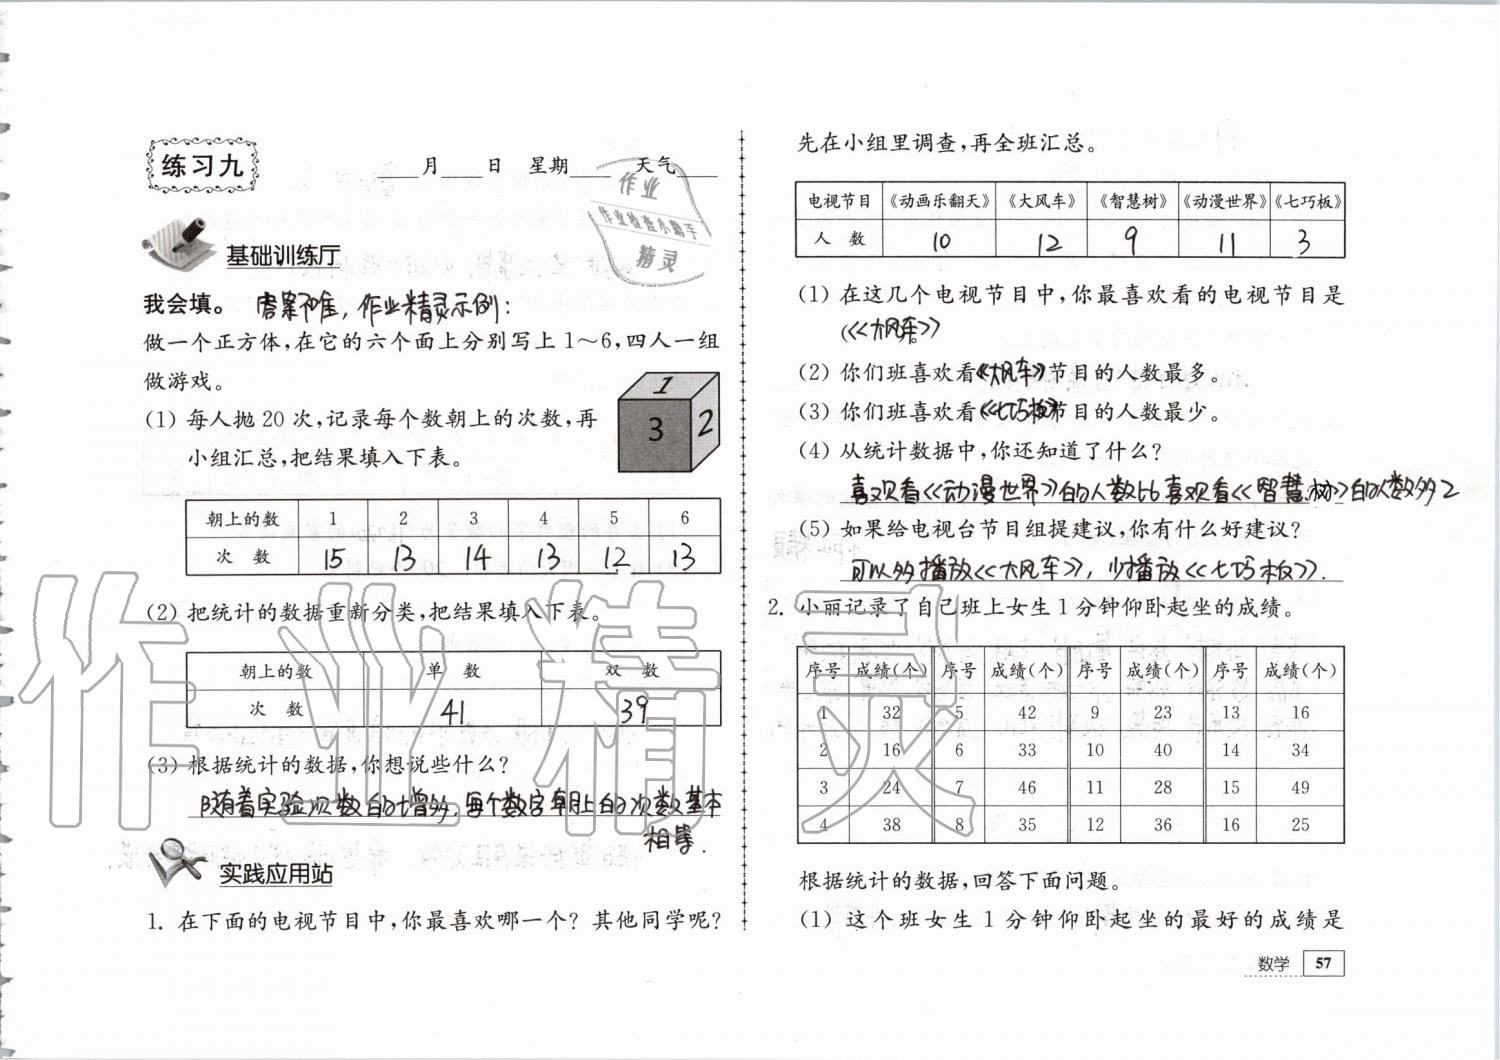 练习九
月 日 星期 天气
作业
作业检查小帮手
精灵
基础训练厅
我会填。 答案不唯，作业精灵示例：
做一个正方体，在它的六个面上分别写上1～6，四人一组
做游戏。
(1) 每人抛20次，记录每个数朝上的次数，再
小组汇总，把结果填入下表。
1
3 2
朝上的数 1 2 3 4 5 6
次 数 15 13 14 13 12 13
(2) 把统计的数据重新分类，把结果填入下表。
朝上的数 单 数 双 数
次 数 41 39
(3) 根据统计的数据，你想说些什么？
随着实验次数的增多，每个数字朝上的次数基本
相等．
实践应用站
1. 在下面的电视节目中，你最喜欢哪一个？其他同学呢？
先在小组里调查，再全班汇总。
电视节目 《动画乐翻天》 《大风车》 《智慧树》 《动漫世界》 《七巧板》
人 数 10 12 9 11 3
(1) 在这几个电视节目中，你最喜欢看的电视节目是
《大风车》
(2) 你们班喜欢看《大风车》节目的人数最多。
(3) 你们班喜欢看《七巧板》节目的人数最少。
(4) 从统计数据中，你还知道了什么？
喜欢看《动漫世界》的人数比喜欢看《智慧树》的人数多2
(5) 如果给电视台节目组提建议，你有什么好建议？
可以多播放《大风车》，少播放《七巧板》．
2. 小丽记录了自己班上女生1分钟仰卧起坐的成绩。
序号 成绩(个) 序号 成绩(个) 序号 成绩(个) 序号 成绩(个)
1 32 5 42 9 23 13 16
2 16 6 33 10 40 14 34
3 24 7 46 11 28 15 49
4 38 8 35 12 36 16 25
根据统计的数据，回答下面问题。
(1) 这个班女生1分钟仰卧起坐的最好的成绩是
数学 57
作业精灵